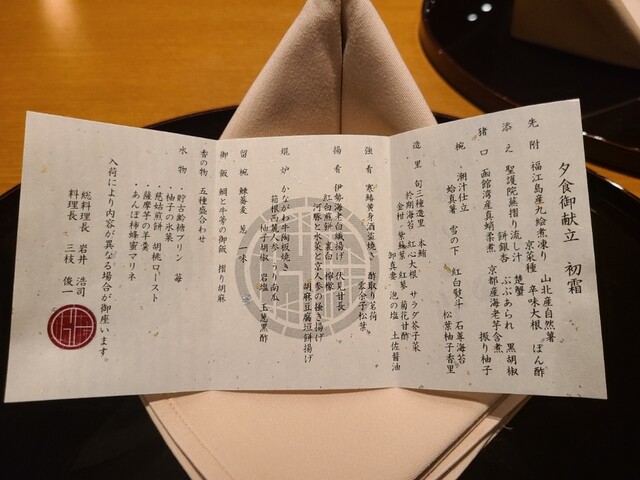 夕食御献立　初霜
先附　福江島産九絵煮凍り　山北産自然薯
京菜種　辛味大根　ぽん酢
添え　聖護院蕪摺り流し汁　楚蟹
餅銀杏　ぶぶあられ　黒胡椒
猪口　函館湾産真蛸柔煮　京都産海老芋含煮
振り柚子
椀　潮汁仕立
蛤真薯　雪の下　紅白熨斗　石蓴海苔
松葉柚子香里
造里　旬三種造里　本鮪　サラダ芥子菜
於期海苔　紅心大根　菊花甘酢
金柑　紫蘇　紅蓼　泡の塩　土佐醤油
卸真妻
強肴　寒鰆黄身酒盗焼き　酢取り茗荷
黄金子松葉
揚肴　伊勢海老白扇揚げ　伏見甘長
紅白煎餅　裏白　檸檬
河豚と水菜と京人参の極上揚げ
胡麻豆腐短餅揚げ
焜炉　かながわ牛陶板焼き
箱根西麓人参　飾り南瓜
柚子胡椒　岩塩　玉葱黒酢
留椀　鰊蕎麦　葱　一味
御飯　鯛と牛蒡の御飯　摺り胡麻
香の物　五種盛合わせ
水物　・貯古齢糖プリン　苺
・柚子の氷菓
・慈姑煎餅　胡桃ロースト
・薩摩芋の羊羹
・あんぽ柿蜂蜜マリネ
入荷により内容が異なる場合が御座います。
総料理長　岩井　浩司
料理長　三枝　俊一